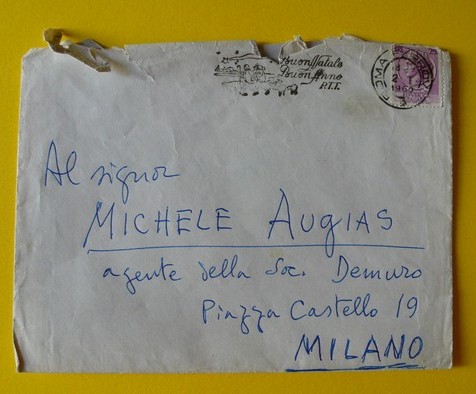 Buon Natale
Buon Anno
P.T.T.
ROMA
2
196
Al signor
MICHELE AUGIAS
agente della Soc. Demuro
Piazza Castello 19
MILANO